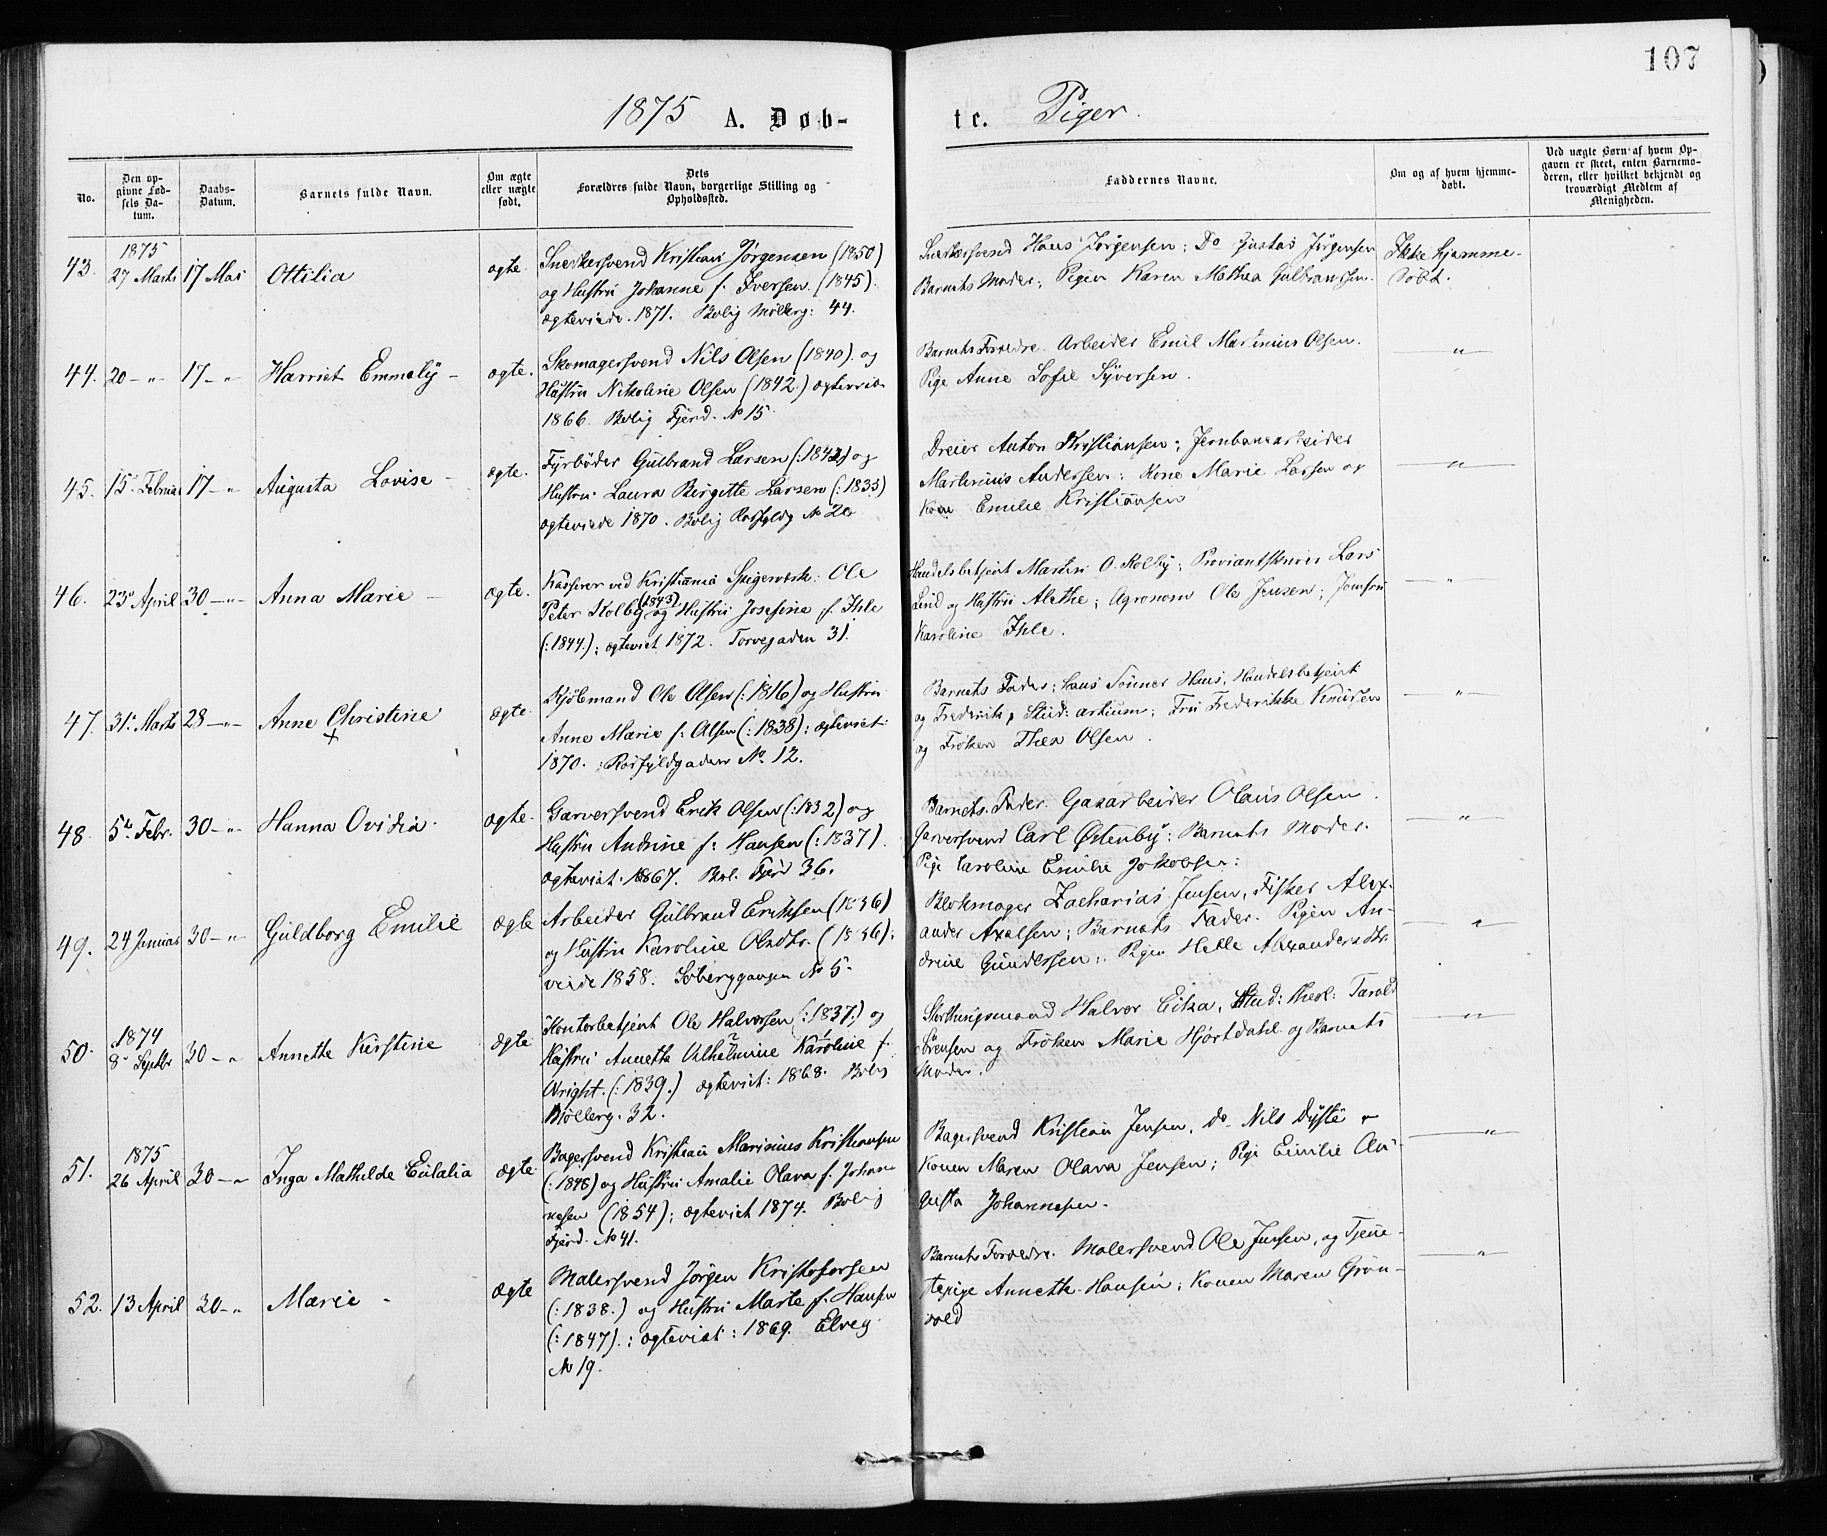 107
1875 A. Døb- te. Piger.
No.
Den op-
givne Fød-
sels Da-
tum.
Daabs-
Datum.
Barnets fulde Navn.
Om ægte
eller uægte
født.
Dets
Forældres fulde Navn, borgerlige Stilling og
Opholdssted.
Faddernes Navne.
Om og af hvem hjemme-
døbt.
Ved uægte Børn af hvem Op-
gaven er skeet, enten Barnemo-
deren, eller hvilket bekjendt og
troværdigt Medlem af
Menigheden.
43.
1875
27 Marts
17 Mai
Ottilia
ægte.
Snedkersvend Kristian Jørgensen (1850)
og Hustru Johanne f. Iversen. (1845).
ægteviede. 1871. Bolig Møllerg: 44.
Snedkersvend Hans Jørgensen; Do Justas Jørgensen
Barnets Moder; Pigen Karen Mathea Gulbranssen.
Ikke hjemme-
døbt.
44.
20 - "-
17 - "
Harriet Emmaly -
ægte.
Skomagersvend Nils Olsen (1840). og
Hustru Nikoline Olsen (1842) ægteviede
1866. Bolig Fjerd. No 15.
Barnets Forældre. Arbeider Emil Martinius Olsen.
Pige Anne Sofie Syversen.
"
45.
15 Februar
17 - "
Augusta Lovise -
ægte.
Fyrbøder Gulbrand Larsen (:1842) og
Hustru Laura Birgitte Larsen (:1835)
ægteviede 1870. Bolig No 20
Dreier Anton Kristiansen; Jernbanearbeider
Martinius Andersen; Kone Marie Larsen og
Kone Emilie Kristiansen
"
46.
23 April
30 - "
Anna Marie -
ægte.
Kasserer ved Kristiania Spigerverk: Ole
Peter Kolby (1843) og Hustru Josefine f. Ihle
(:1844.); ægteviet 1872. Torvegaden 31.
Handelsbetjent Martin O. Kolby; Lars
Lind og Hustru Alethe; Agronom Ole Jensen; Jomfru
Karoline Ihle.
"
47.
31 Marts
28 - "
Anne Christine
+
ægte.
Kjøbmand Ole Olsen (:1816) og Hustru
Anne Marie f. Olsen (:1838); ægteviet
1870. No. 12.
Barnets Fader; hans Sønner Hans, Handelsbetjent
og Frederik, Stud: artium; Fru Frederikke Knudsen
og Frøken Thea Olsen.
"
48.
5te Febr.
30 - "
Hanna Ovidia.
ægte.
Garversvend Erik Olsen (:1832) og
Hustru Andrine f: Hansen (:1837).
ægteviet. 1867. Bol. Fjerd 36.
Barnets Fader. Gasarbeider Olaus Olsen.
Garversvend Carl Østenby; Barnets Moder.
Pige Caroline Emilie Jakobsen:
"
49.
24 Januar
30 - "
Guldborg Emilie
ægte
Arbeider Gulbrand Eriksen (1836)
og Hustru Karoline Olsdtr. (1836);
viede 1858. Søberggangen No 5.
Blokmager Zacharias Jensen, Fisker Alex-
ander Axelsen; Barnets Fader. Pigen An-
drine Gundersen; Pigen Helle Alexandersdtr
"
50.
1874
8 Septbr
30 - "
Annette Kirstine
ægte
Kontorbetjent Ole Halvorsen (:1837,) og
Hustru Annetta Vilhelmine Karoline f.
Wright. (:1839.) ægteviet: 1868. Bolig
Møllerg. 32.
Storthingsmand Halvor Eika, Stud: theol: Tarald
Sørensen og Frøken Marie Hjortdahl og Barnets
Moder.
"
51.
1875
26 April
30 - "
Inga Mathilde Eulalia
ægte
Bagersvend Kristian Marinius Kristiansen
(:1848) og Hustru Amalie Olava f. Johan-
nesen (1854); ægteviet 1874. Bolig
Fjerd. No 41.
Bagersvend Kristian Jensen, Do Nils Dyste
Konen Maren Olava Jensen; Pige Emilie Au-
gusta Johannesen.
"
52.
13 April
30 - "
Marie -
ægte
Malersvend Jørgen Kristofersen
(:1838.) og Hustru Marte f. Hansen
(:1847).; ægteviet: 1869. Elveg.
No 19.
Barnets Forældre. Malersvend Ole Jensen, og Tjene-
stepige Annethe Hansen; Konen Maren Grøn-
vold
"